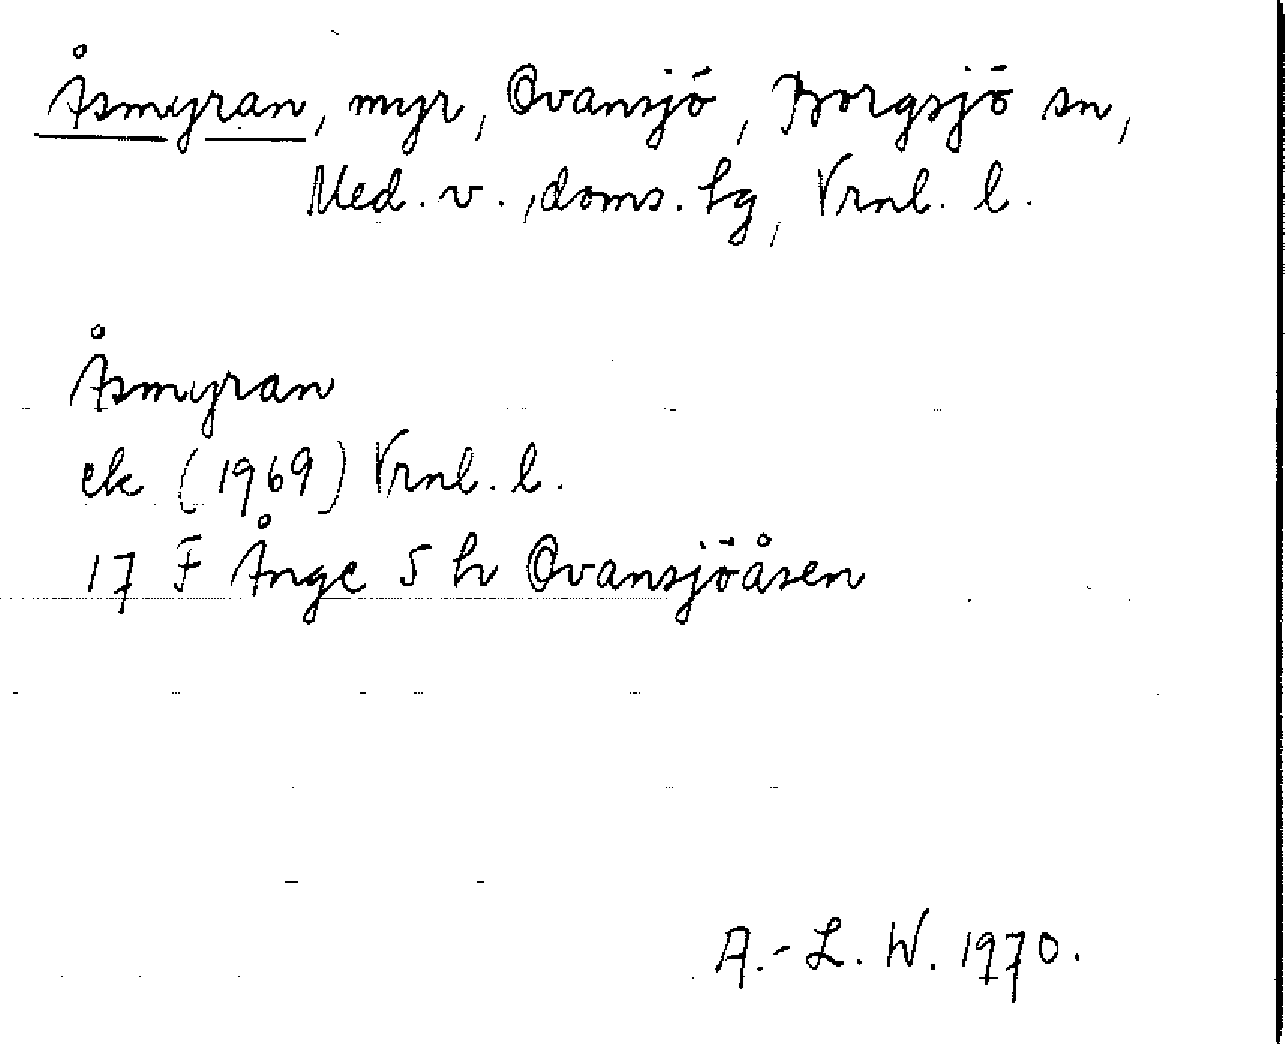 Åsmyran, myr, Ovansjö, Borgsjö sn,
Med. v., doms. hg, Vrnl. l.
Åsmyran
ek (1969) Vrnl. l.
17 F Ånge 5 h Ovansjöåsen
A.-L. W. 1970.